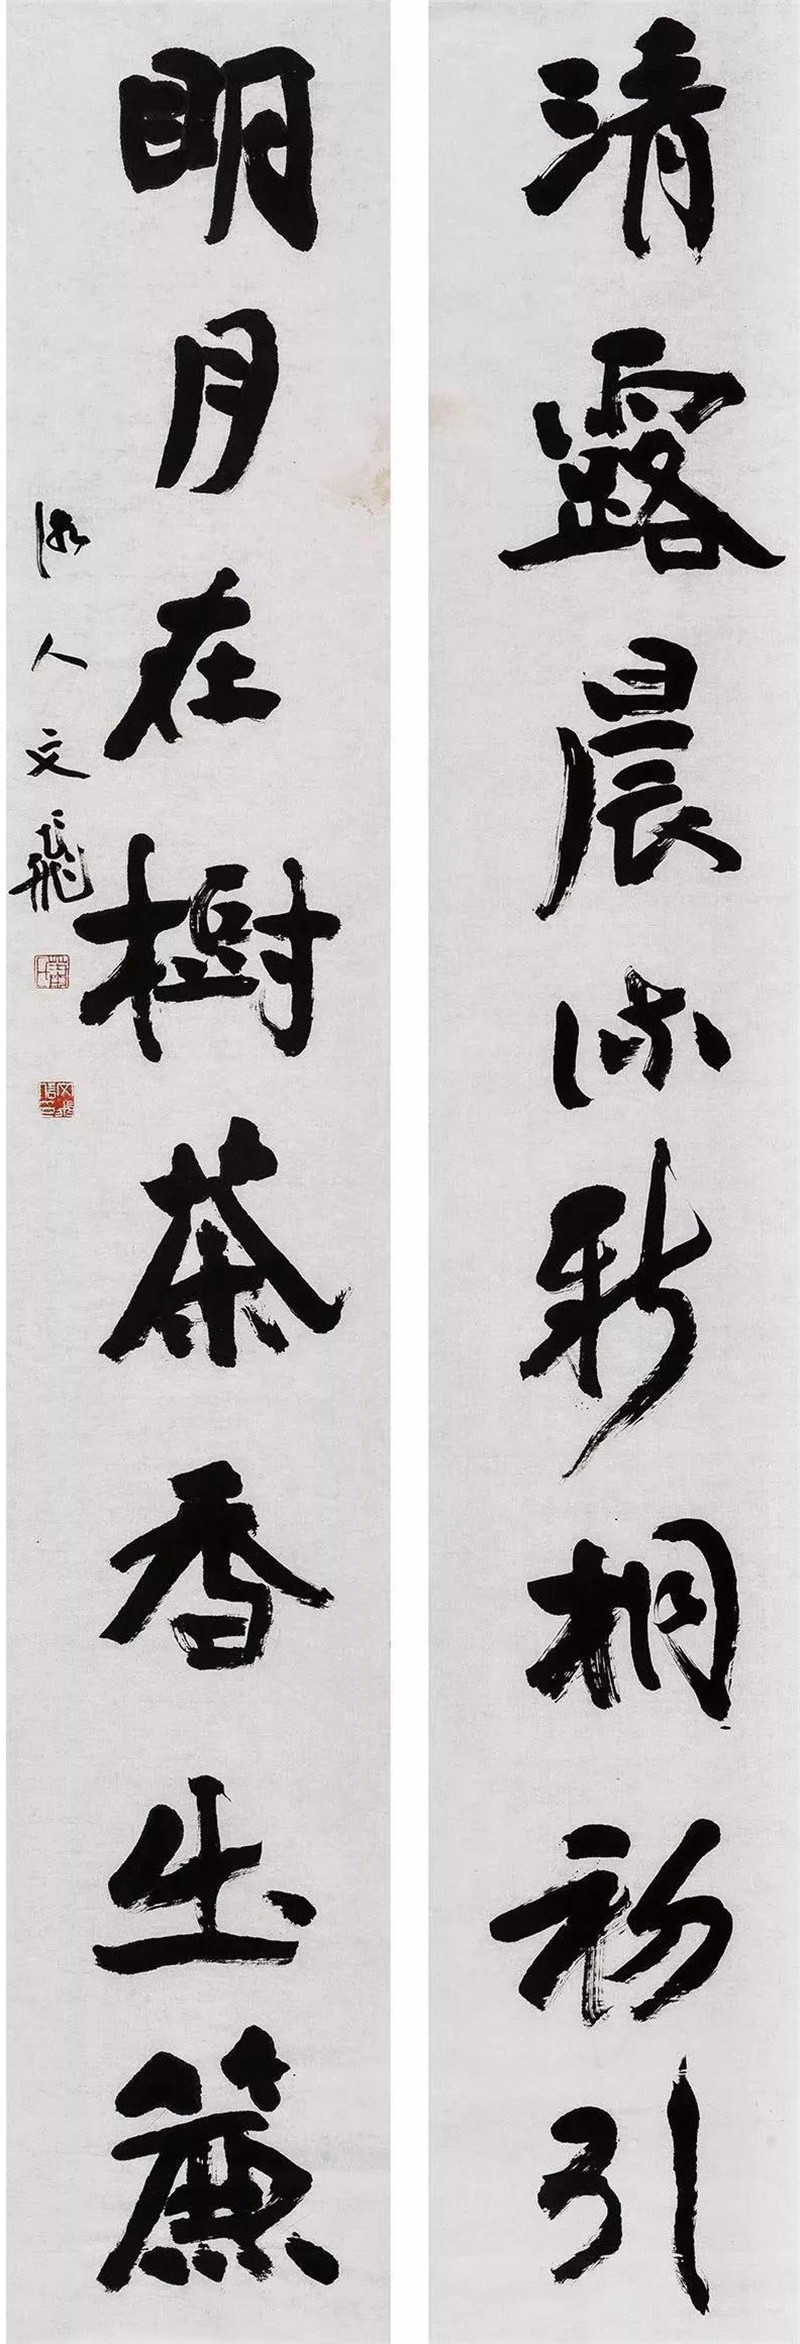 清露晨流新桐初引
明月在樹茶香出簾
湖人文飛